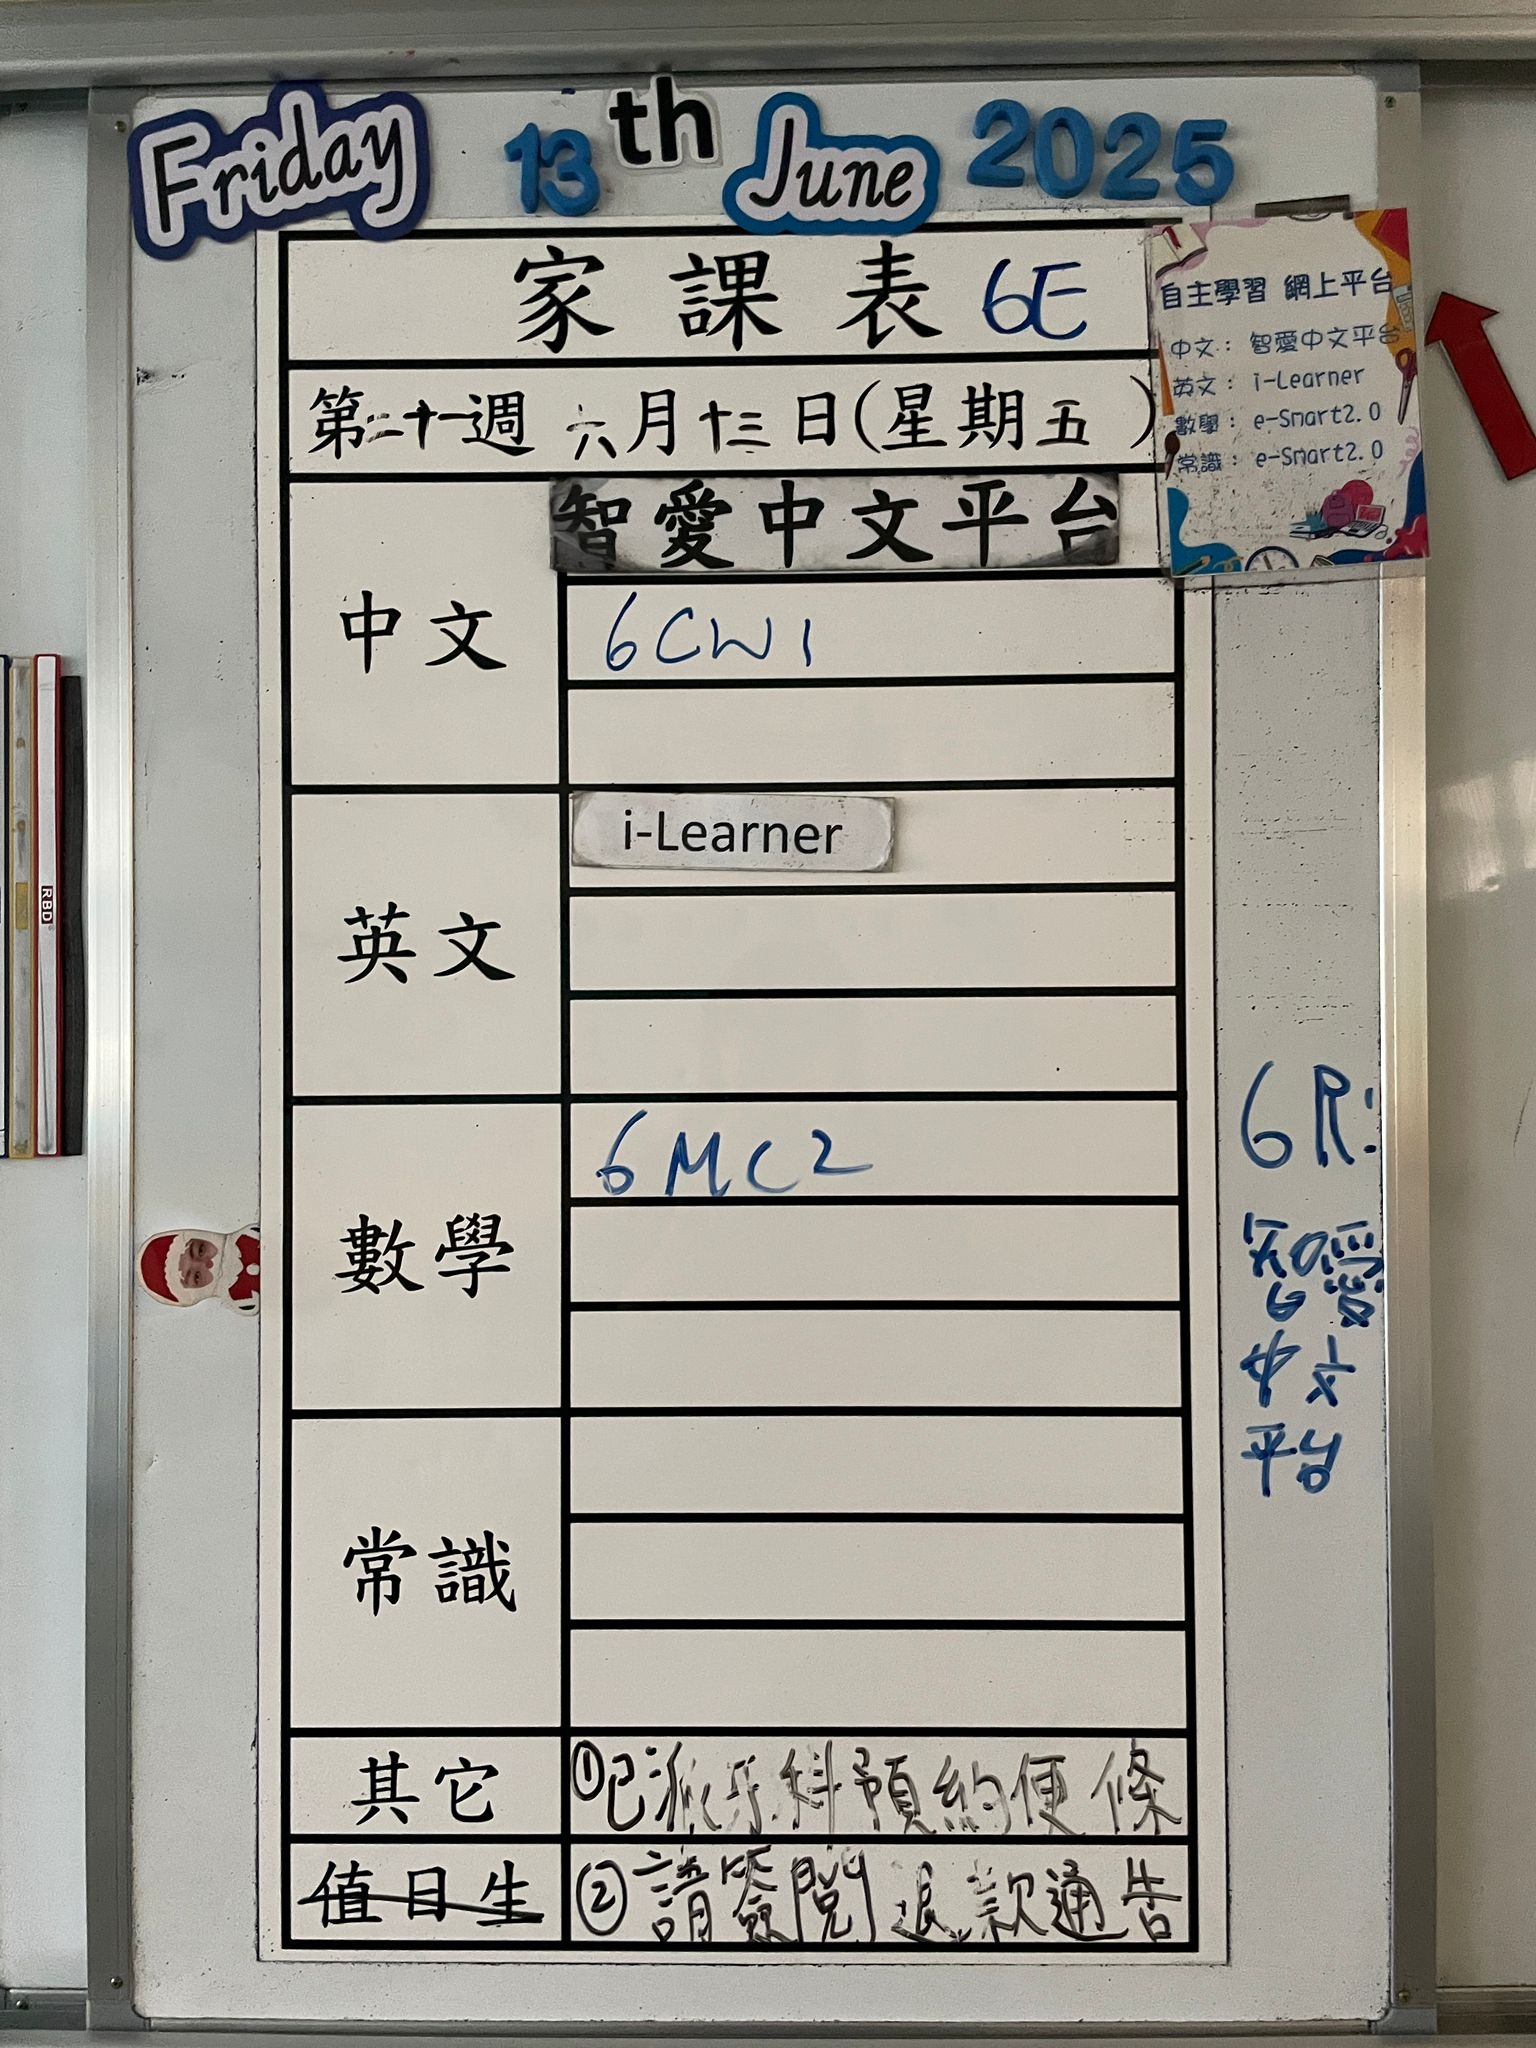 Friday 13th June 2025
家課表 6E
第二十一週 六月十三日(星期五)
自主學習 網上平台
中文：智愛中文平台
英文：i-Learner
數學：e-Smart2.0
常識：e-Smart2.0
中文
智愛中文平台
6CW1
英文
i-Learner
數學
6MC2
常識
其它
①已派牙科預約便條
值日生
②請簽閱退款通告
6R:
智愛
中文
平台
RBD